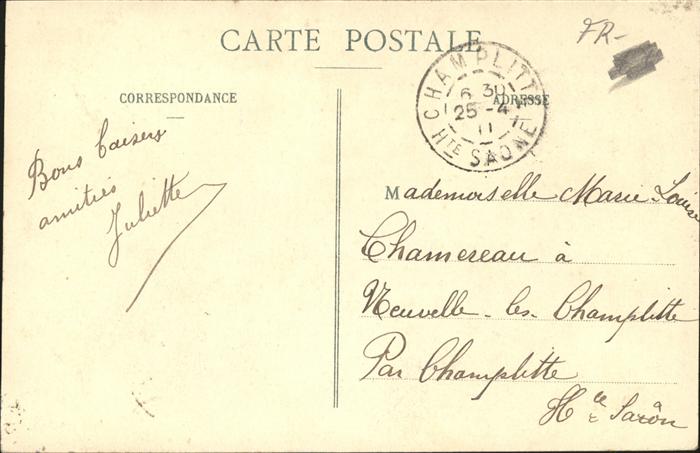 CARTE POSTALE
FR-
CORRESPONDANCE
ADRESSE
CHAMPLITTE
6 30
25 -4
11
HTE SAONE
Bons baisers
amitiés
Juliette
Mademoiselle Marie Louise
Chamereau à
Neuvelle-les-Champlitte
Par Champlitte
Hte Saôn